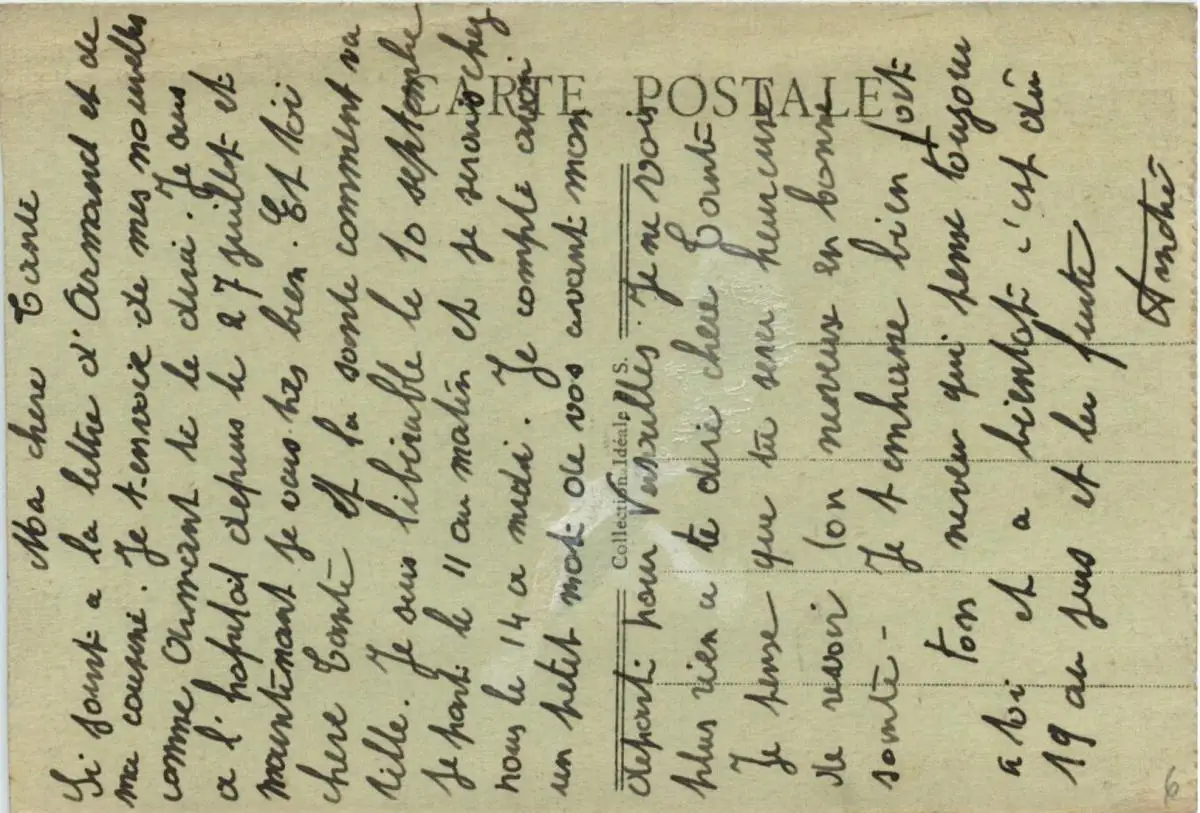 Ma chere Tante
Si joint a la lettre d'Armand et de
ma cousine. Je t'envoie de mes nouvelles
comme Armant te le dira. Je suis
a l'hopital depuis le 27 juillet et
maintenant je vais très bien. Et toi
chere Tante et la sante comment va
t'elle. Je suis libérable le 10 septembre
Je part le 11 au matin et je serais chez
nous le 14 a midi. Je compte avoir
un petit mot de vos avant mon
depart pour Versailles. Je ne vois
plus rien a te dire chere Tante
Je pense que tu sera heureuse
de revoir ton neveux en bonne
sante -
Je t embrasse bien fort
Ton neveu qui pense toujour
a toi et a bientot c'est du
19 au jus et la fuite
André
CARTE POSTALE
Collection Idéale P. S.
6